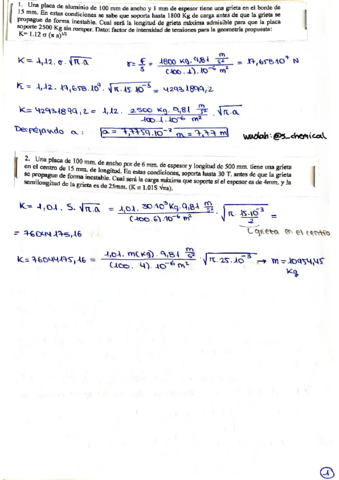 1. Una placa de aluminio de 100 mm de ancho y 1 mm de espesor tiene una grieta en el borde de
15 mm. En estas condiciones se sabe que soporta hasta 1800 Kg de carga antes de que la grieta se
propague de forma inestable. Cual será la longitud de grieta máxima admisible para que la placa
soporte 2500 Kg sin romper. Dato: factor de intensidad de tensiones para la geometría propuesta:
K= 1.12 σ (π a)^1/2
K = 1,12 . σ . √π.a σ = F/S = 1800 Kg . 9,81 m/s² / (100 . 1) . 10⁻⁶ m² = 17,658.10⁷ N
K = 1,12 . 17,658.10⁷ . √π . 15 . 10⁻³ = 42931899,2
K = 42931899,2 = 1,12 . 2500 Kg . 9,81 m/s² / 100 . 1 . 10⁻⁶ m² . √π . a
Despejando a: a = 7,7759.10⁻³ m = 7,77 m wuolah: @s_chemical
2. Una placa de 100 mm. de ancho por de 6 mm. de espesor y longitud de 500 mm. tiene una grieta
en el centro de 15 mm. de longitud. En estas condiciones, soporta hasta 30 T. antes de que la grieta
se propague de forma inestable. Cual será la carga máxima que soporte si el espesor es de 4mm. y la
semilongitud de la grieta es de 25mm. (K = 1.01S √πa).
K = 1,01 . S . √π.a = 1,01 . 30.10³ Kg . 9,81 m/s² / (100 . 6) . 10⁻⁶ m² . √π . 15.10⁻³ / 2 =
grieta en el centro
= 76044175,16
K = 76044175,16 = 1,01 . m(kg) . 9,81 m/s² / (100 . 4) 10⁻⁶ m² . √π . 25 . 10⁻³ → m = 10954,45
Kg
1